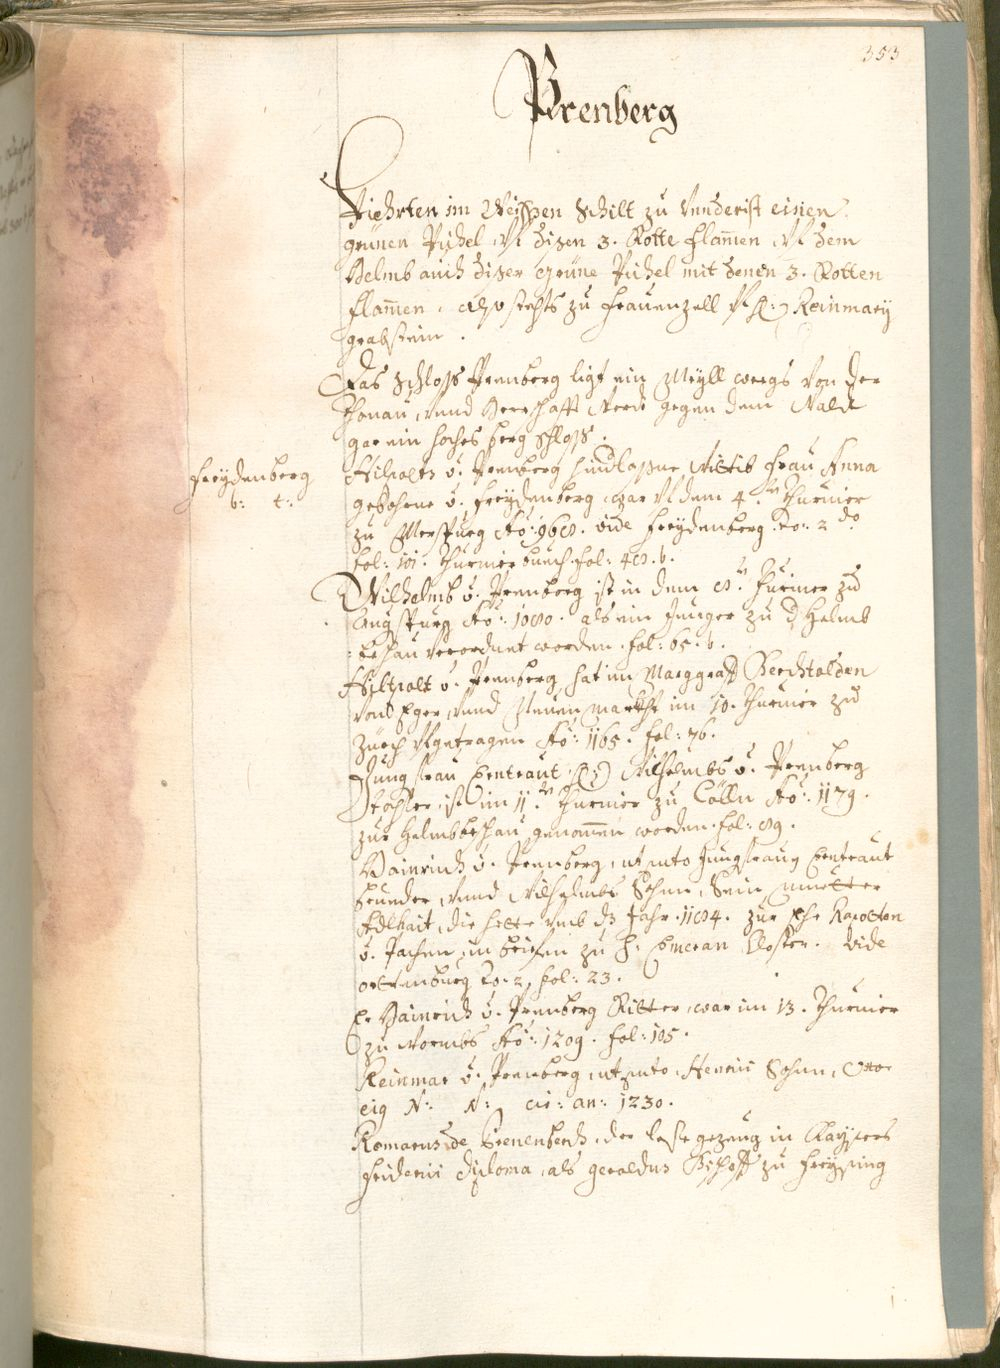 353
Prenberg
Fiehrten im Weissen Schilt zu Underist einen
grünen Pichel, Uf disen 3. Rotte flam̄en, Uf dem
Helmb auch diser grüne Pichel mit denen 3. Rotten
flam̄en, also stehts zu Frauenzell Uf H: Reinmary
grabstein.
Das Schloss Prenberg ligt ein Meyll weegs von der
Thonau, unnd Herrschafft Werdt gegen dem Waldt
gar ein hoches berg schloss.
Hilpolts v. Prenberg hindlassne Wittib Frau Anna
gebohrne v. Freydenberg, war Uf dem 4. Thurnier
zu Merspurg Aō: 968. vide Freydenberg. to: 2do
fol: 101. Thurnierbuech fol: 48. b.
Freydenberg
b: t:
Wilhelmb v. Prenberg ist in dem 8. Turnier zu
Augspurg Aō: 1080. als ein Junger zu d Helmb
beschau verordnet worden. fol: 65. b.
Hiltpolt v. Prenberg hat im Marggraff Berchtolden
von Eger, unnd Neuen markht im 10. Thurnier zu
Zürch Ufgetragen Aō: 1165. fol: 76.
Jungfrau Gertraut, H: Wilhelmbs v. Prenberg
Tochter, ist im 11. Thurnier zu Cölln Aō: 1179.
zur Helmbbeschau genom̄en worden. fol: 89.
Hainrich v. Prenberg, ut puto Jungfraug Gertraut
brueder, unnd Wilhelmbs Sohn, Sein muetter
Adlhait, die hette umb ds Jahr. 1184. zur Ehe Rapotten
v. Jachen, in briefen zu S: Emeran Closter. Vide
orttenburg to: 2, fol: 23.
Er Hainrich v. Prenberg Ritter, war im 13. Thurnier
zu Wormbs Aō: 1209. fol: 105.
Reinmar v. Prenberg, ut puto, Henrici Sohn,
N: N: an: 1230.
de Prenenberch, der lesste gezeug in Kaysers
Friderici diploma, als geraldus Bischoff zu Freysing